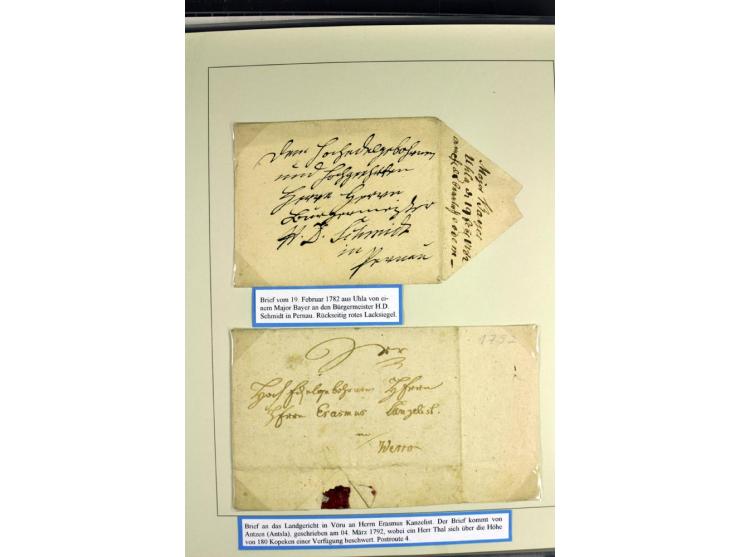 Dem Hochedelgebohrnen
und Hochgeehrten
Herrn Herrn
Bürgermeister
H. D. Schmidt
in
Pernau
Major Bayer
Uhla d. 19
Brief vom 19. Februar 1782 aus Uhla von ei-
nem Major Bayer an den Bürgermeister H.D.
Schmidt in Pernau. Rückseitig rotes Lacksiegel.
1792
Hoch Edelgebohrnen Herrn
Herrn Erasmus Canzelist.
Werro
Brief an das Landgericht in Võru an Herrn Erasmus Kanzelist. Der Brief kommt von
Antzen (Antsla), geschrieben am 04. März 1792, wobei ein Herr Thal sich über die Höhe
von 180 Kopeken einer Verfügung beschwert. Postroute 4.